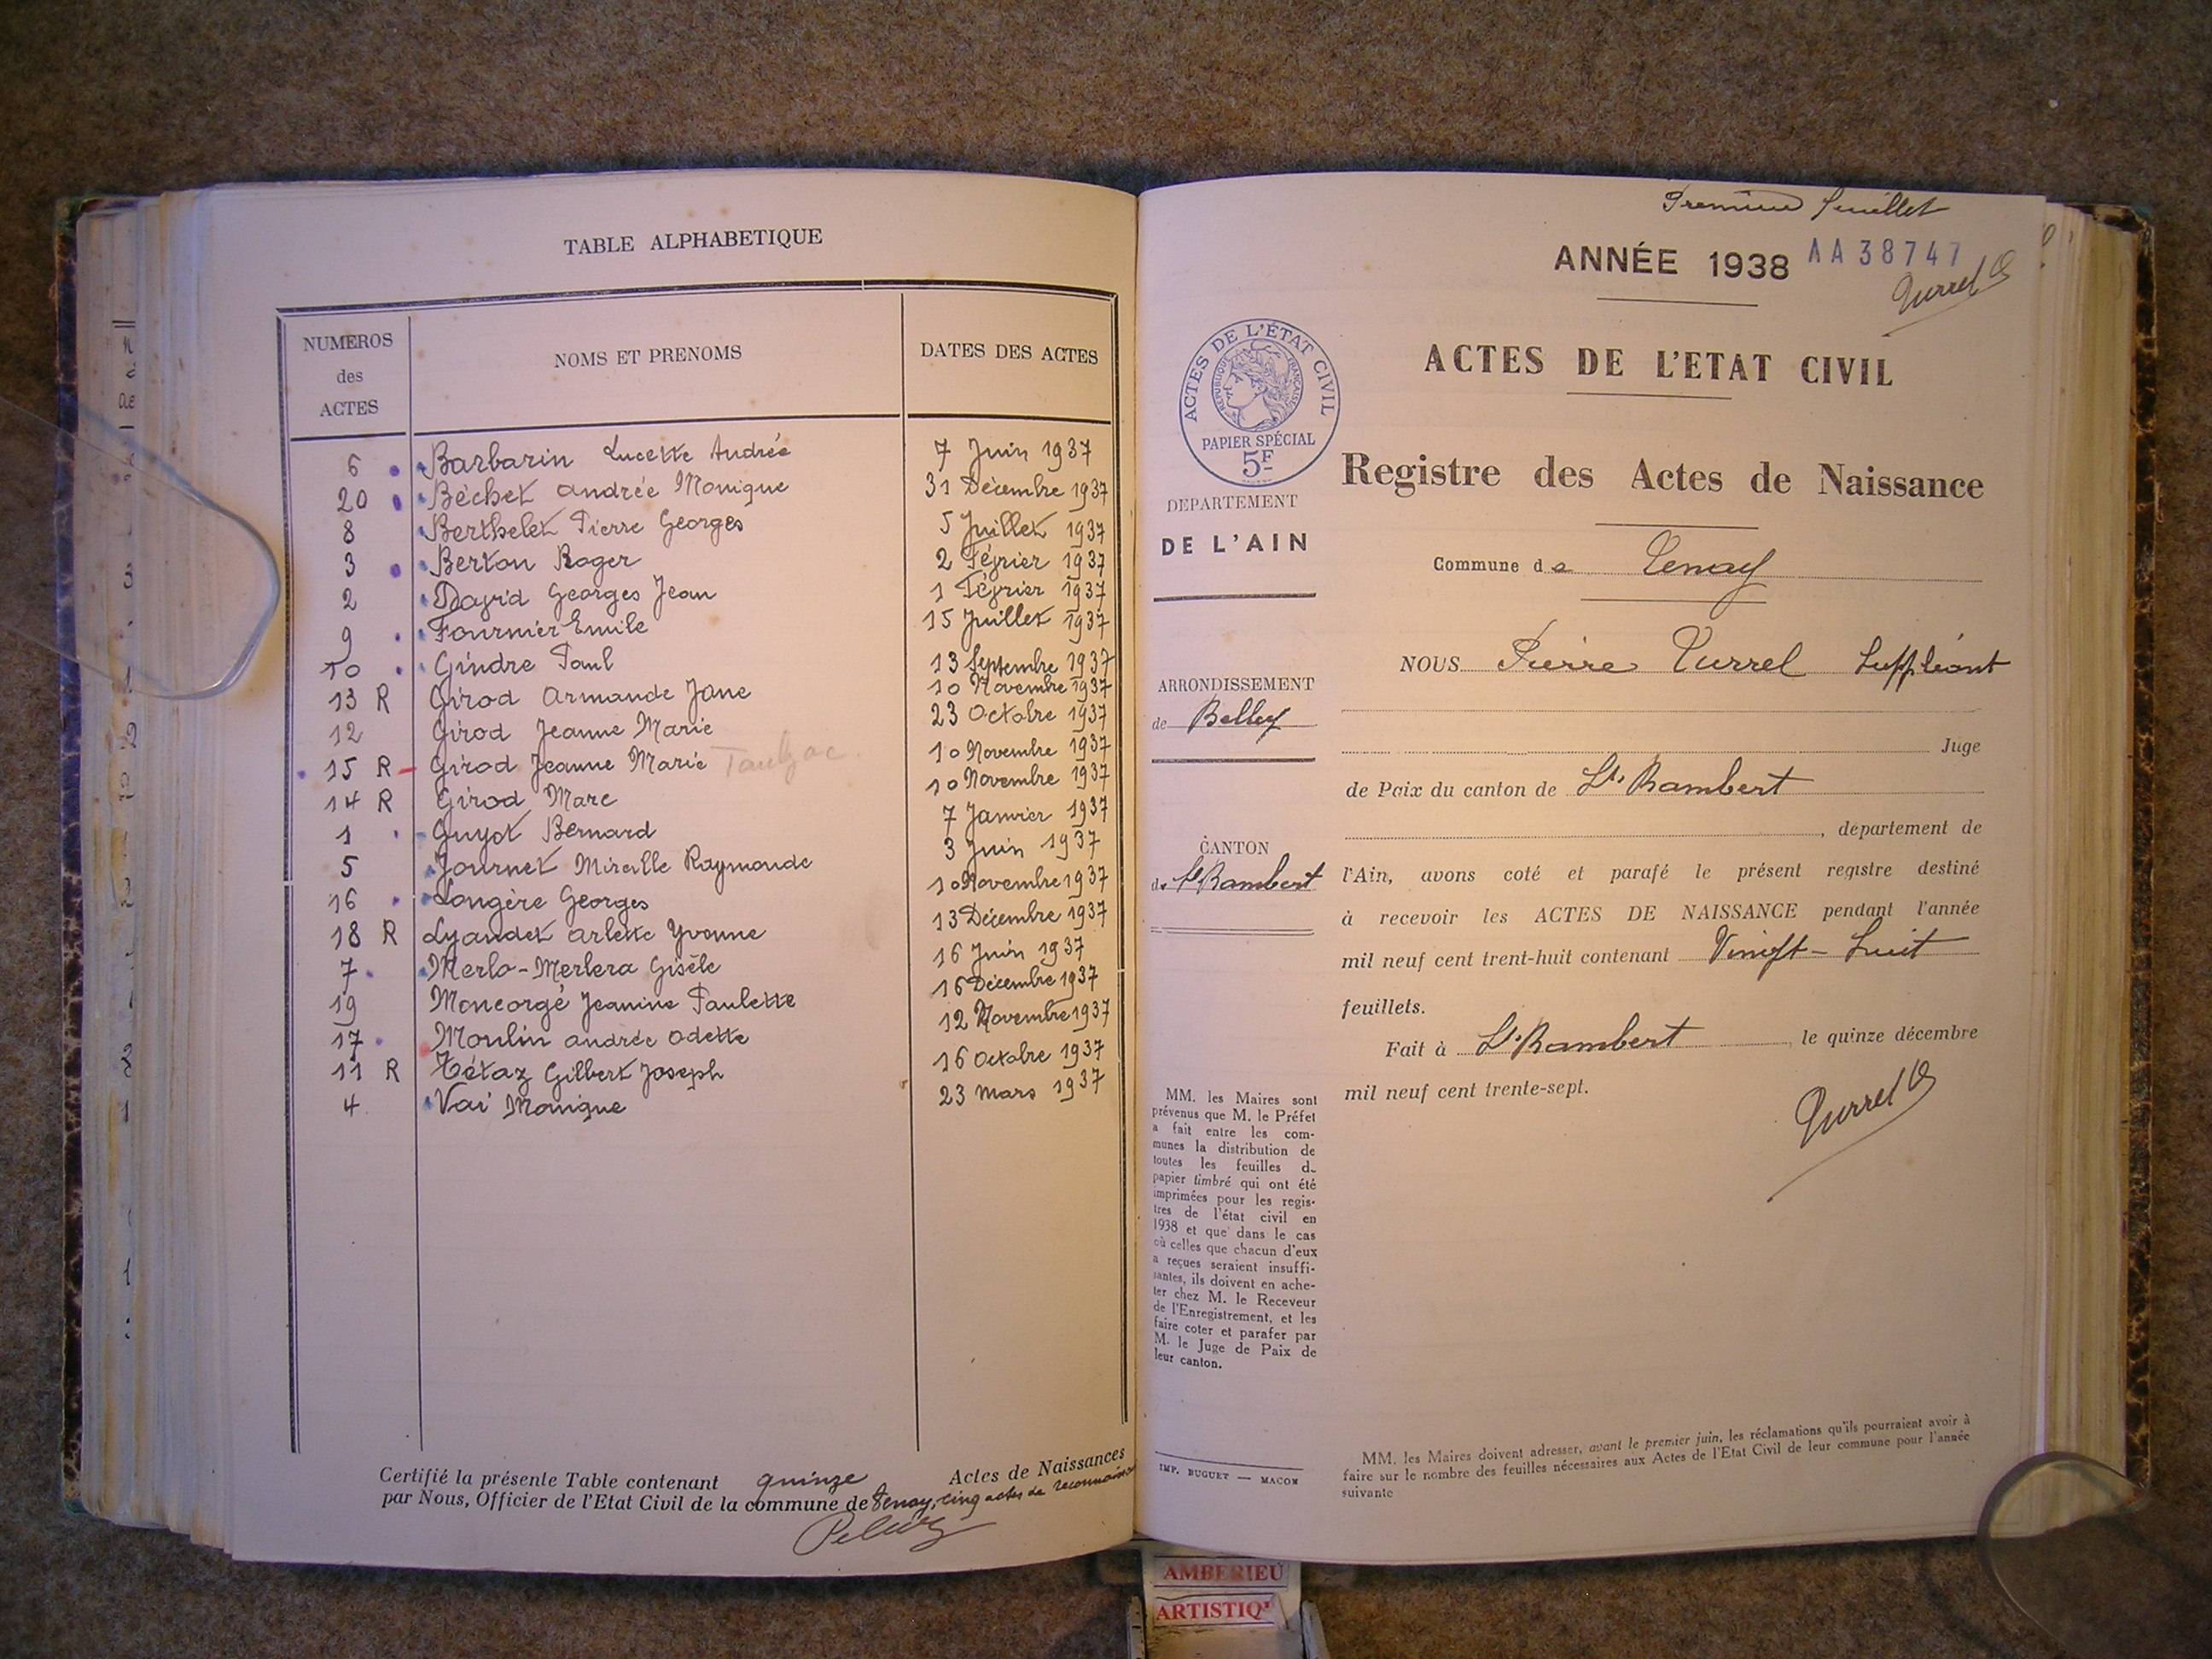 TABLE ALPHABETIQUE
NUMEROS des ACTES NOMS ET PRENOMS DATES DES ACTES
6 Barbarin Lucette Andrée 7 Juin 1937
20 Béchet Andrée Monique 31 Décembre 1937
8 Berthelet Pierre Georges 5 Juillet 1937
3 Berton Roger 2 Février 1937
2 David Georges Jean 1 Février 1937
9 Fournier Emile 15 Juillet 1937
10 Gindre Paul 13 Septembre 1937
13 R Girod Armande Jane 10 Novembre 1937
12 Girod Jeanne Marie 23 Octobre 1937
15 R Girod Jeanne Marie 10 Novembre 1937
14 R Girod Marc 10 Novembre 1937
1 Guyot Bernard 7 Janvier 1937
5 Journet Mireille Raymonde 3 Juin 1937
16 Longère Georges 10 Novembre 1937
18 R Lyandet Arlette Yvonne 13 Décembre 1937
7 Merlo-Merlera Gisèle 16 Juin 1937
19 Moncorgé Jeanine Paulette 16 Décembre 1937
17 Moulin Andrée Odette 12 Novembre 1937
11 R Tétaz Gilbert Joseph 16 Octobre 1937
4 Vai Monique 23 Mars 1937
Certifié la présente Table contenant quinze Actes de Naissances
par Nous, Officier de l'Etat Civil de la commune de Tenay, cinq actes de reconnaissance
Premier feuillet
ANNÉE 1938 AA38747
Turrel
ACTES DE L'ÉTAT CIVIL
RÉPUBLIQUE FRANÇAISE
PAPIER SPÉCIAL
5F
ACTES DE L'ETAT CIVIL
Registre des Actes de Naissance
DEPARTEMENT
DE L'AIN
Commune de Tenay
NOUS Pierre Turrel Suppléant
ARRONDISSEMENT
de Belley
Juge
de Paix du canton de St. Rambert
, département de
CANTON
de St Rambert
l'Ain, avons coté et parafé le présent registre destiné
à recevoir les ACTES DE NAISSANCE pendant l'année
mil neuf cent trent-huit contenant Vingt-huit
feuillets.
Fait à St. Rambert, le quinze décembre
mil neuf cent trente-sept.
Turrel
MM. les Maires sont
prévenus que M. le Préfet
a fait entre les com-
munes la distribution de
toutes les feuilles de
papier timbré qui ont été
imprimées pour les regis-
tres de l'état civil en
1938 et que dans le cas
où celles que chacun d'eux
a reçues seraient insuffi-
santes, ils doivent en ache-
ter chez M. le Receveur
de l'Enregistrement, et les
faire coter et parafer par
M. le Juge de Paix de
leur canton.
IMP. BUGUET — MACON
MM. les Maires doivent adresser, avant le premier juin, les réclamations qu'ils pourraient avoir à
faire sur le nombre des feuilles nécessaires aux Actes de l'Etat Civil de leur commune pour l'année
suivante
AMBERIEU
ARTISTIQ